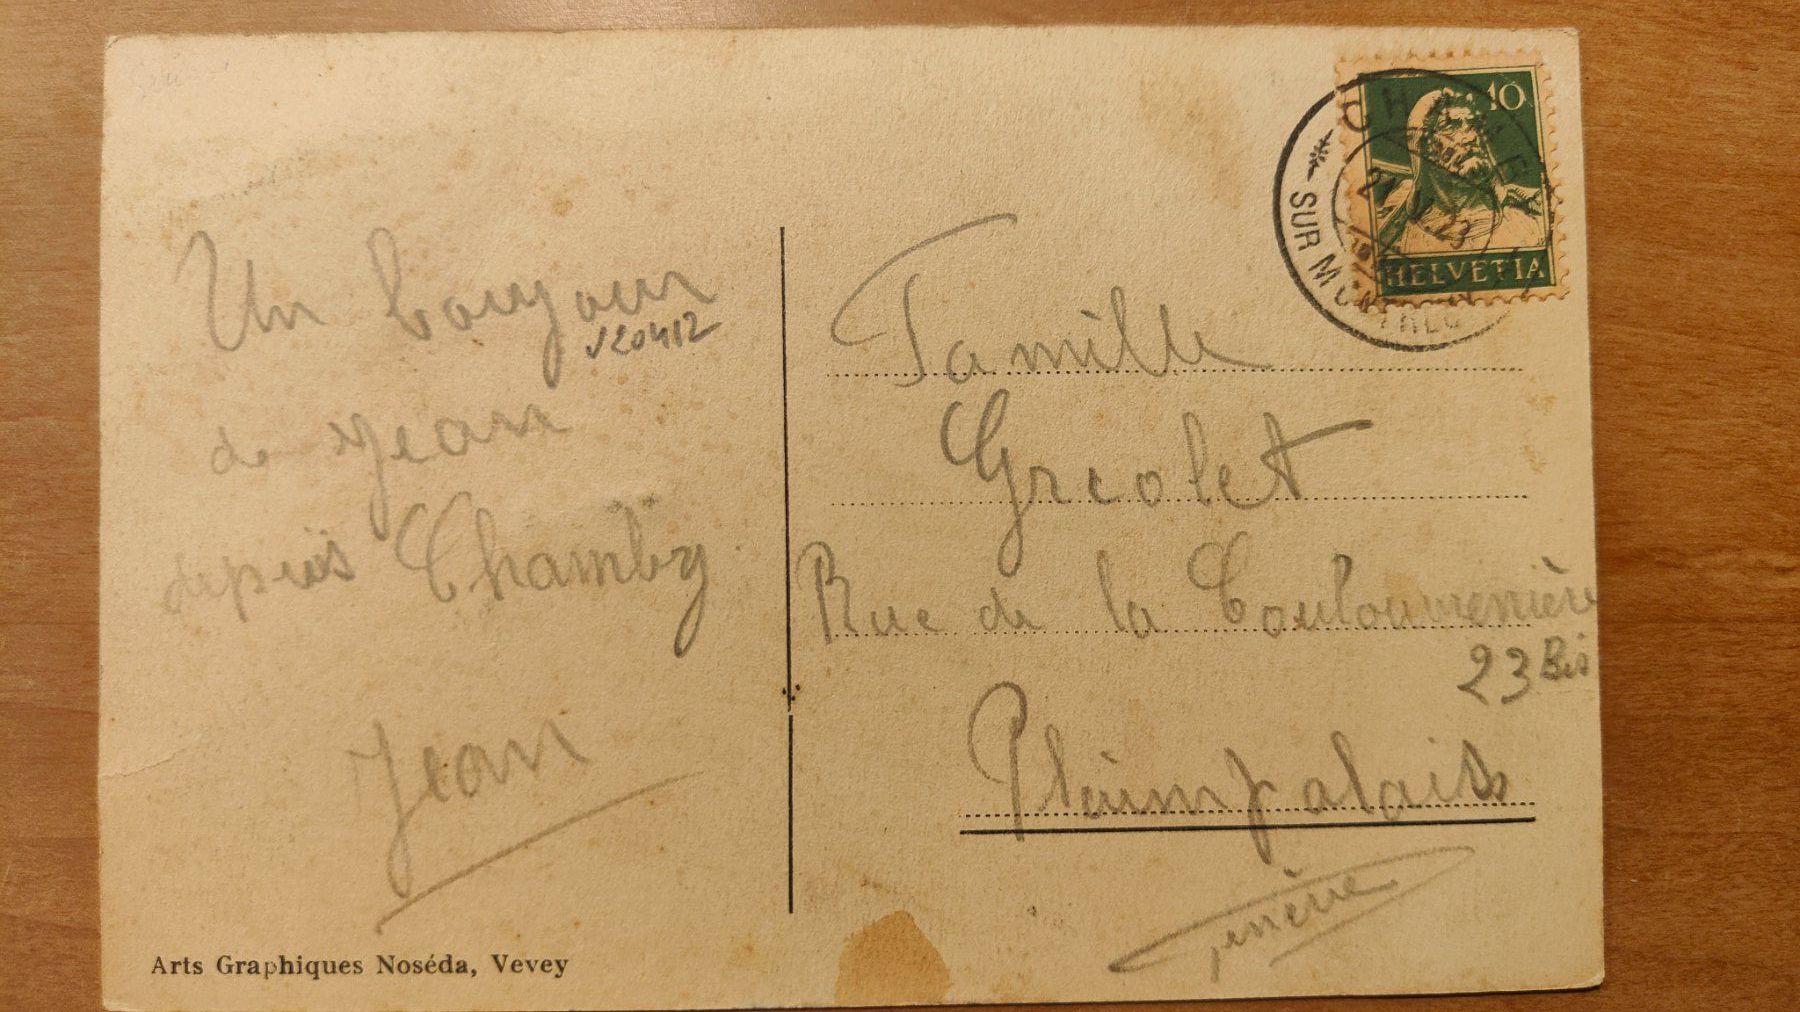 Un bonjour
J20412
de Jean
depuis Chamby
Jean
Arts Graphiques Noséda, Vevey
10
HELVETIA
SUR MONTREUX
Famille
Greolet
Rue de la Coulouvrenière
23 Bis
Plainpalais
Genève